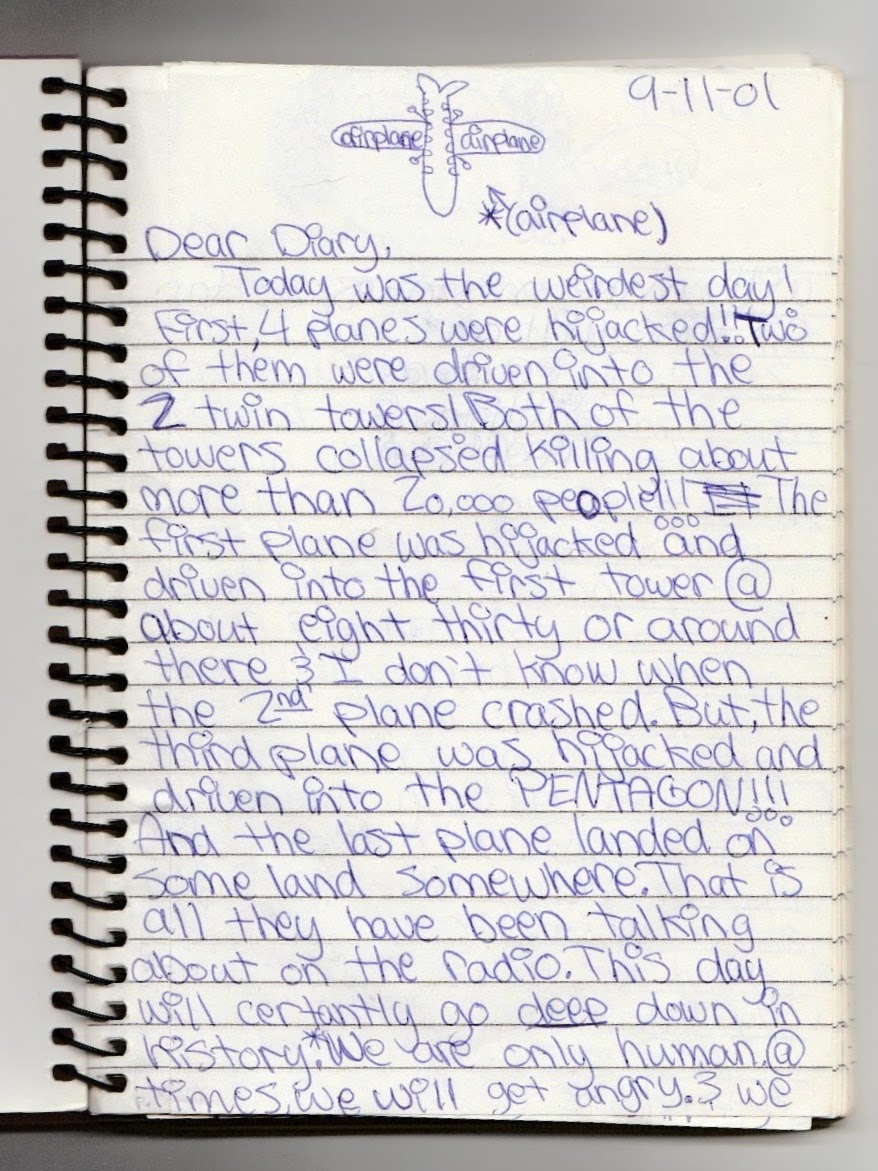 9-11-01
airplane airplane
*(airplane)
Dear Diary,
Today was the weirdest day!
First, 4 planes were hijacked!! Two
of them were driven into the
2 twin towers! Both of the
towers collapsed killing about
more than 20,000 people!!! The
first plane was hijacked and
driven into the first tower @
about eight thirty or around
there & I don't know when
the 2nd plane crashed. But, the
third plane was hijacked and
driven into the PENTAGON!!!
And the last plane landed on
some land somewhere. That is
all they have been talking
about on the radio. This day
will certantly go deep down in
history.* We are only human. @
times, we will get angry. & we